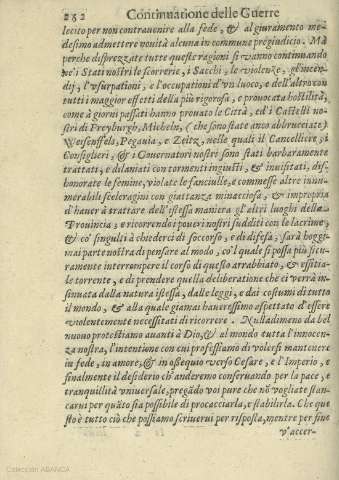 252 Continuatione delle Guerre
lecito per non contrauenire alla fede, & al giuramento me-
desimo admettere nouità alcuna in commune pregiudicio. Mà
perche disprezzate tutte queste ragioni si vanno continuando
ne'i Stati nostri le scorrerie, i Sacchi, le violenze, gl'incen-
dij, l'vsurpationi, e l'occupationi d'vn luoco, e dell'altro con
tutti i maggior effetti della più rigorosa, e prouocata hostilità,
come à giorni passati hanno prouato le Città, ed i Castelli no-
stri di Freyburgh, Micheln, (che sono state anco abbrucciate)
Weisenffels, Pegauia, e Zeitz, nelle quali il Cancelliere, i
Consiglieri, & i Gouernatori nostri sono stati barbaramente
trattati, e dilaniati con tormenti ingiusti, & inusitati, dis-
honorate le femine, violate le fanciulle, e commesse altre innu-
merabili sceleragini con giattanza minacciosa, & impropria
d'hauer à trattare dell'istessa maniera gl'altri luoghi della
Prouincia, e ricorrendo i poueri nostri sudditi con le lacrime,
& co' singulti à chiederci di soccorso, e di difesa, sarà hoggi-
mai parte nostra di pensare al modo, co'l quale si possa più sicu-
ramente interrompere il corso di questo arrabbiato, & essitia-
le torrente, e di prendere quella deliberatione che ci verrà in-
sinuata dalla natura istessa, dalle leggi, e dai costumi di tutto
il mondo, & alla quale giamai hauressimo aspettato d'essere
violentemente necessitati di ricorrere. Nulladimeno da bel
nuouo protestiamo auanti à Dio, & al mondo tutta l'innocen-
za nostra, l'intentione con cui professiamo di volersi mantenere
in fede, in amore, & in ossequio verso Cesare, e l'Imperio, e
finalmente il desiderio ch'anderemo conseruando per la pace, e
tranquillità vniuersale, pregãdo voi pure che nõ vogliate stan-
carui per quãto sia possibile di procacciarla, e stabilirla. Che que
sto è tutto ciò che possiamo scriuerui per risposta, mentre per fine
v'accer-
Colección ABANCA